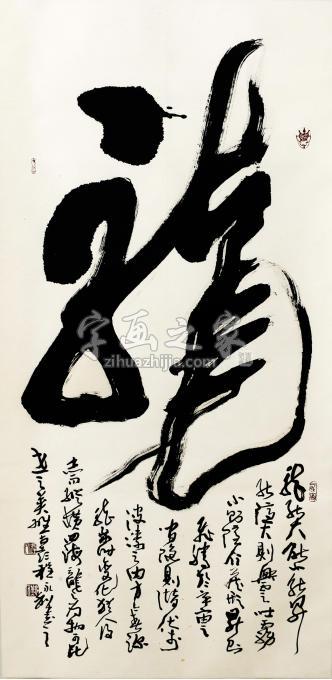 龍
龍能大能小能昇
能隱大則興雲吐霧
小則隱介藏形昇則
飛騰於宇宙之
間隱則潜伏於
波濤之内方今春深
龍乘時變化猶人得
志而縱横四海龍之為物可比
世之英雄
字画之家
zihuazhijia.com